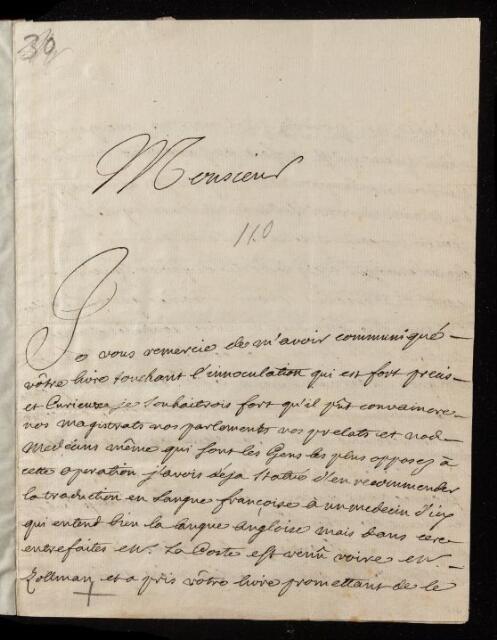 30
Monsieur
110
Je vous remercie de m'avoir communiqué
vôtre livre touchant l'innoculation qui est fort precis
et Curieux, je souhaitrois fort qu'il pût convaincre
nos magistrats nos parlements nos prelats et nos
Medecins même qui sont les Gens les plus opposez à
cette operation j'avois deja statué d'en recommender
la traduction en Langue françoise à un medecin d'icy
qui entend bien la langue angloise mais dans ces
entrefaites Mr. La Coste est venû voire Mr.
Zollman, et a pris vôtre livre promettant de le